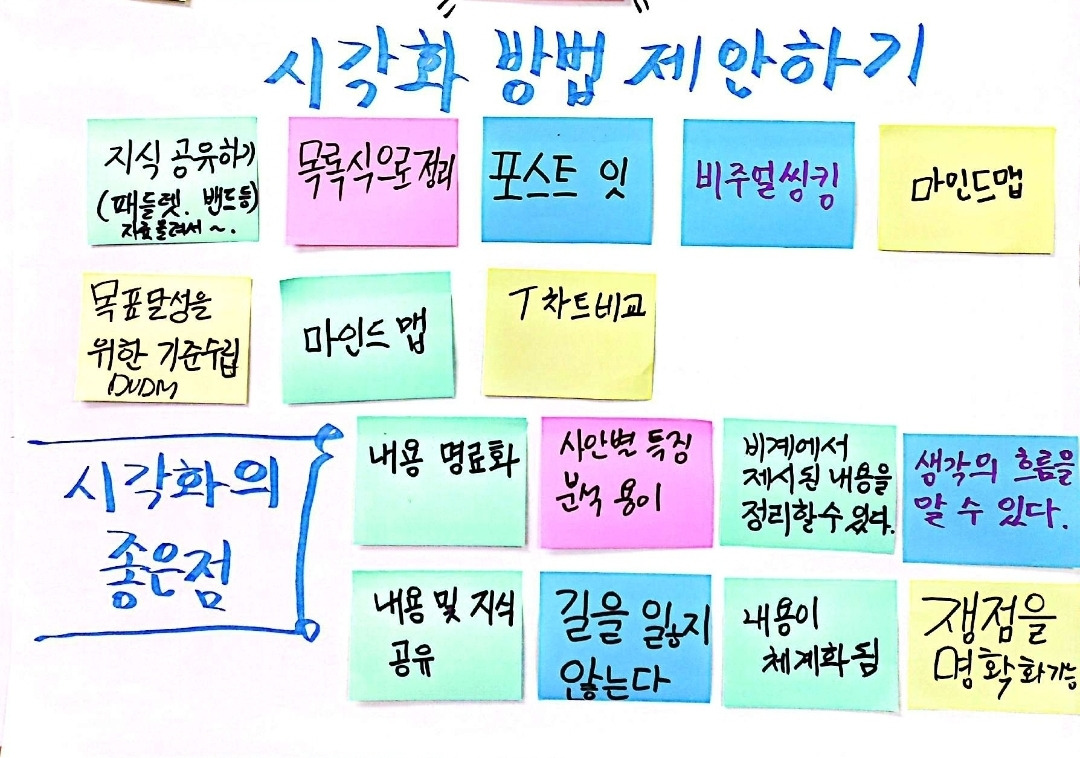 시각화 방법 제안하기
지식 공유하기
(패들렛. 밴드등)
자료올려서 ~.
목록식으로정리
포스트 잇
비주얼씽킹
마인드맵
목표달성을
위한 기준수립
마인드 맵
T 차트비교
시각화의
좋은점
내용 명료화
사안별 특징
분석 용이
비계에서
제시된 내용을
정리할수 있다.
생각의 흐름을
알 수 있다.
내용 및 지식
공유
길을 잃지
않는다
내용이
체계화 됨
쟁점을
명확화가능